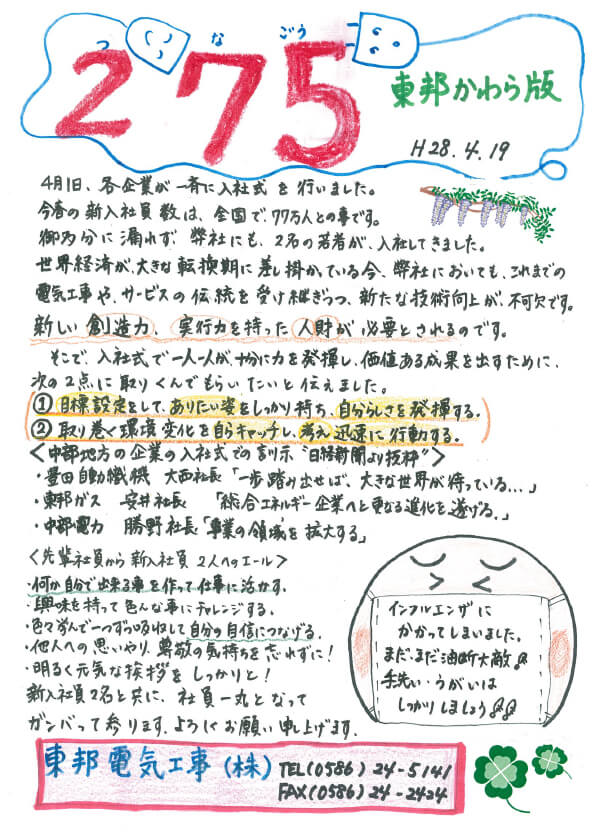 つ な ごう
275
東邦かわら版
H28.4.19
4月1日、各企業が一斉に入社式を行いました。
今春の新入社員数は、全国で、77万人との事です。
御多分に漏れず 弊社にも、2名の若者が、入社してきました。
世界経済が、大きな転換期に差し掛かっている今、弊社においても、これまでの
電気工事や、サービスの伝統を受け継ぎつつ、新たな技術向上が、不可欠です。
新しい創造力、実行力を持った人財が必要とされるのです。
そこで、入社式で一人一人が、十分に力を発揮し、価値ある成果を出すために、
次の2点に取りくんでもらいたいと伝えました。
① 目標設定をして、ありたい姿をしっかり持ち、自分らしさを発揮する。
② 取り巻く環境変化を自らキャッチし、考え迅速に行動する。
<中部地方の企業の入社式での訓示 "日経新聞より抜粋">
・豊田自動織機 大西社長「一歩踏み出せば、大きな世界が待っている...」
・東邦ガス 安井社長 「総合エネルギー企業へと更なる進化を遂げる。」
・中部電力 勝野社長「事業の領域を拡大する」
<先輩社員から新入社員2人へのエール>
・何か自分で出来る事を作って仕事に活かす。
・興味を持って色んな事にチャレンジする。
・色々学んで一つずつ吸収して自分の自信につなげる。
・他人への思いやり、尊敬の気持ちを忘れずに!
・明るく元気な挨拶をしっかりと!
新入社員2名と共に、社員一丸となって
ガンバって参ります。よろしくお願い申し上げます。
インフルエンザに
かかってしまいました。
まだまだ油断大敵
手洗い・うがいは
しっかりしましょう
東邦電気工事(株) TEL(0586)24-5141
FAX(0586)24-2424